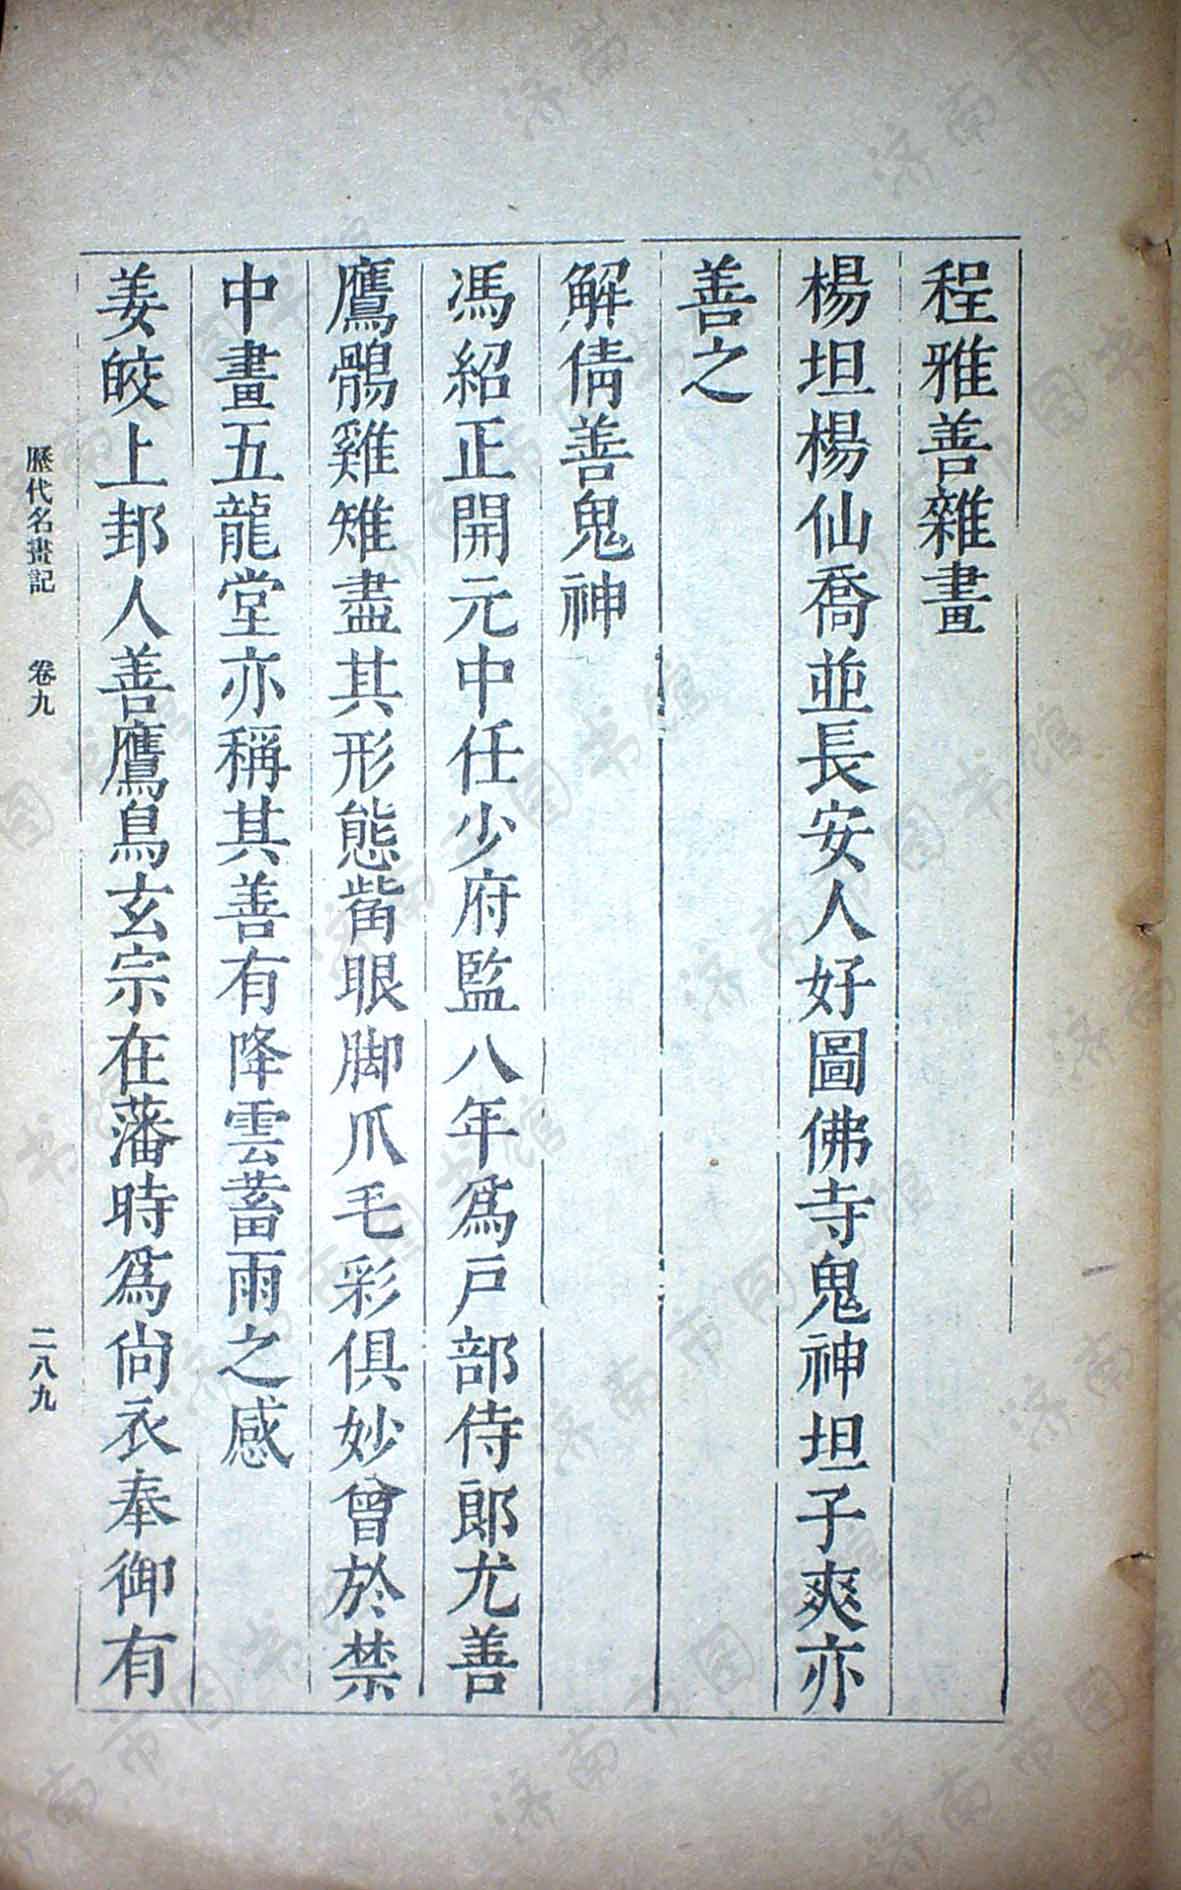 程雅善雜畫
楊坦楊仙喬並長安人好圖佛寺鬼神坦子爽亦
善之
解倩善鬼神
馮紹正開元中任少府監八年爲戶部侍郎尤善
鷹鶻雞雉盡其形態觜眼脚爪毛彩俱妙曾於禁
中畫五龍堂亦稱其善有降雲蓄雨之感
姜皎上邽人善鷹鳥玄宗在藩時爲尙衣奉御有
歷代名畫記 卷九 二八九
济南市图书馆